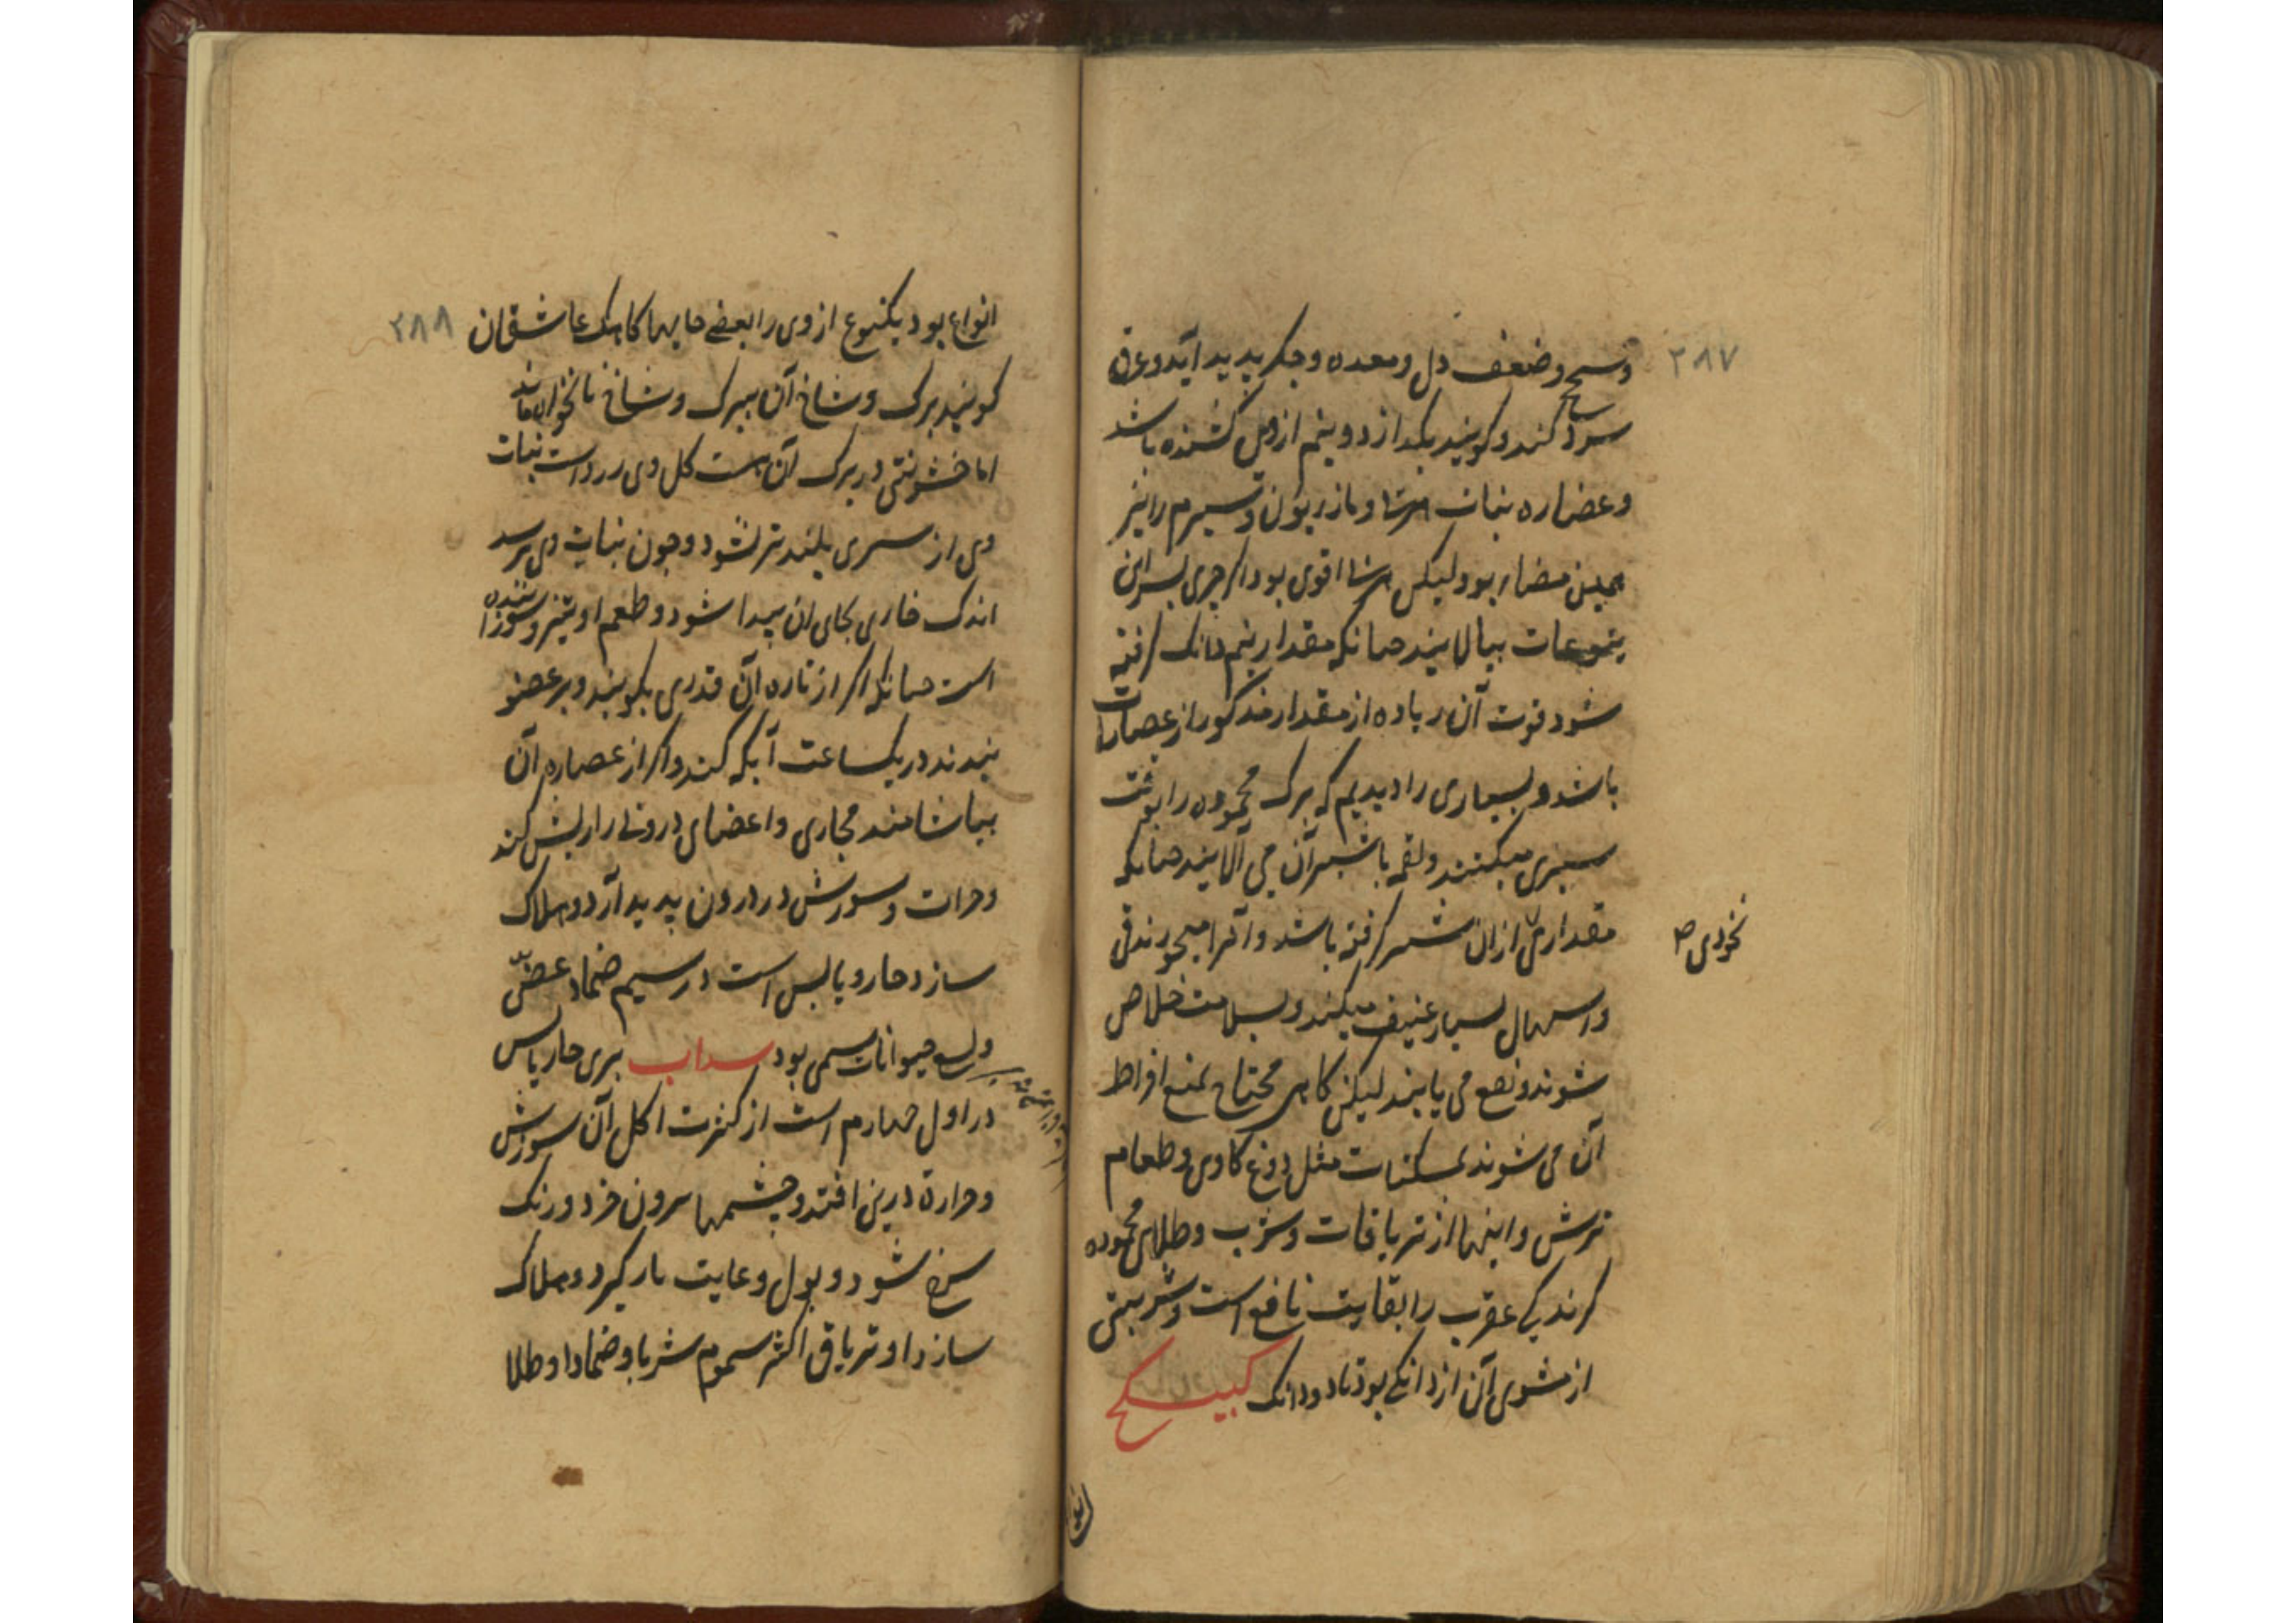 ۲۸۷
وسحج وضعف دل ومعده وجکر پدید آید وعرق
سرد کند وکویند یکدانک ازو ونیم ازوی کشنده باشد
وعصاره نبات ومازریون وسیرم را نیز
همین مضار بود لیکن اقوی بود اکر چیزی بسر این
یتوعات بیالایند چنانکه مقدار نیم دانک کرفته
شود قوت آن زیاده از مقدار مذکور از عصارات
باشد وبسیاری را دیدیم که برک محموده را بوقت
سبزی میکنند ولقمه باشیر آن می آلایند چنانکه
مقداری ازان شیر کرفته باشد وآنرا میخورند قی
واسهال بسیار عنیف میکند وبسلامت خلاص
شوند ونفع می یابند لیکن کاهی محتاج بمنع افراط
آن می شوند بمسکنات مثل دوغ کاوی وطعام
ترش واینها از تریاقات وشرب وطلای محموده
کزندکی عقرب را بغایت نافع است وشربتی
از مشوی آن از دانکی بود تا دو دانک کبیکج
نخودی صح
۲۸۸
انواع بود یکنوع از وی را بعضی جایها کاهک عاشقان
کویند برک وشاخ آن ببرک وشاخ نانخواه ماند
اما خشونتی در برک آن هست کل وی زرد است نبات
وی از سری بلندتر نشود وچون نبات وی برسد
اندک خاری بجای ان پیدا شود وطعم او تیز وسوزاننده
است چنانکه اکر از تازه آن قدری بکویند وبر عضو
بندند در یکساعت آبله کند واکر از عصاره آن
بیاشامند مجاری واعضای درونی را ریش کند
وحرات وسوزش در درون پدید آرد وهلاک
سازد حار ویابس است در سیم ضماد عض
ولسع حیوانات سمی بود سداب بری حار یابس
در اول چهارم است از کثرت اکل آن سوزش
وحرارة درین افتد وچشمها برون خزد ورنک
سرخ شود وبول وغایت باز کیرد وهلاک
سازد او تریاق اکثر سموم شربا وضمادا وطلا